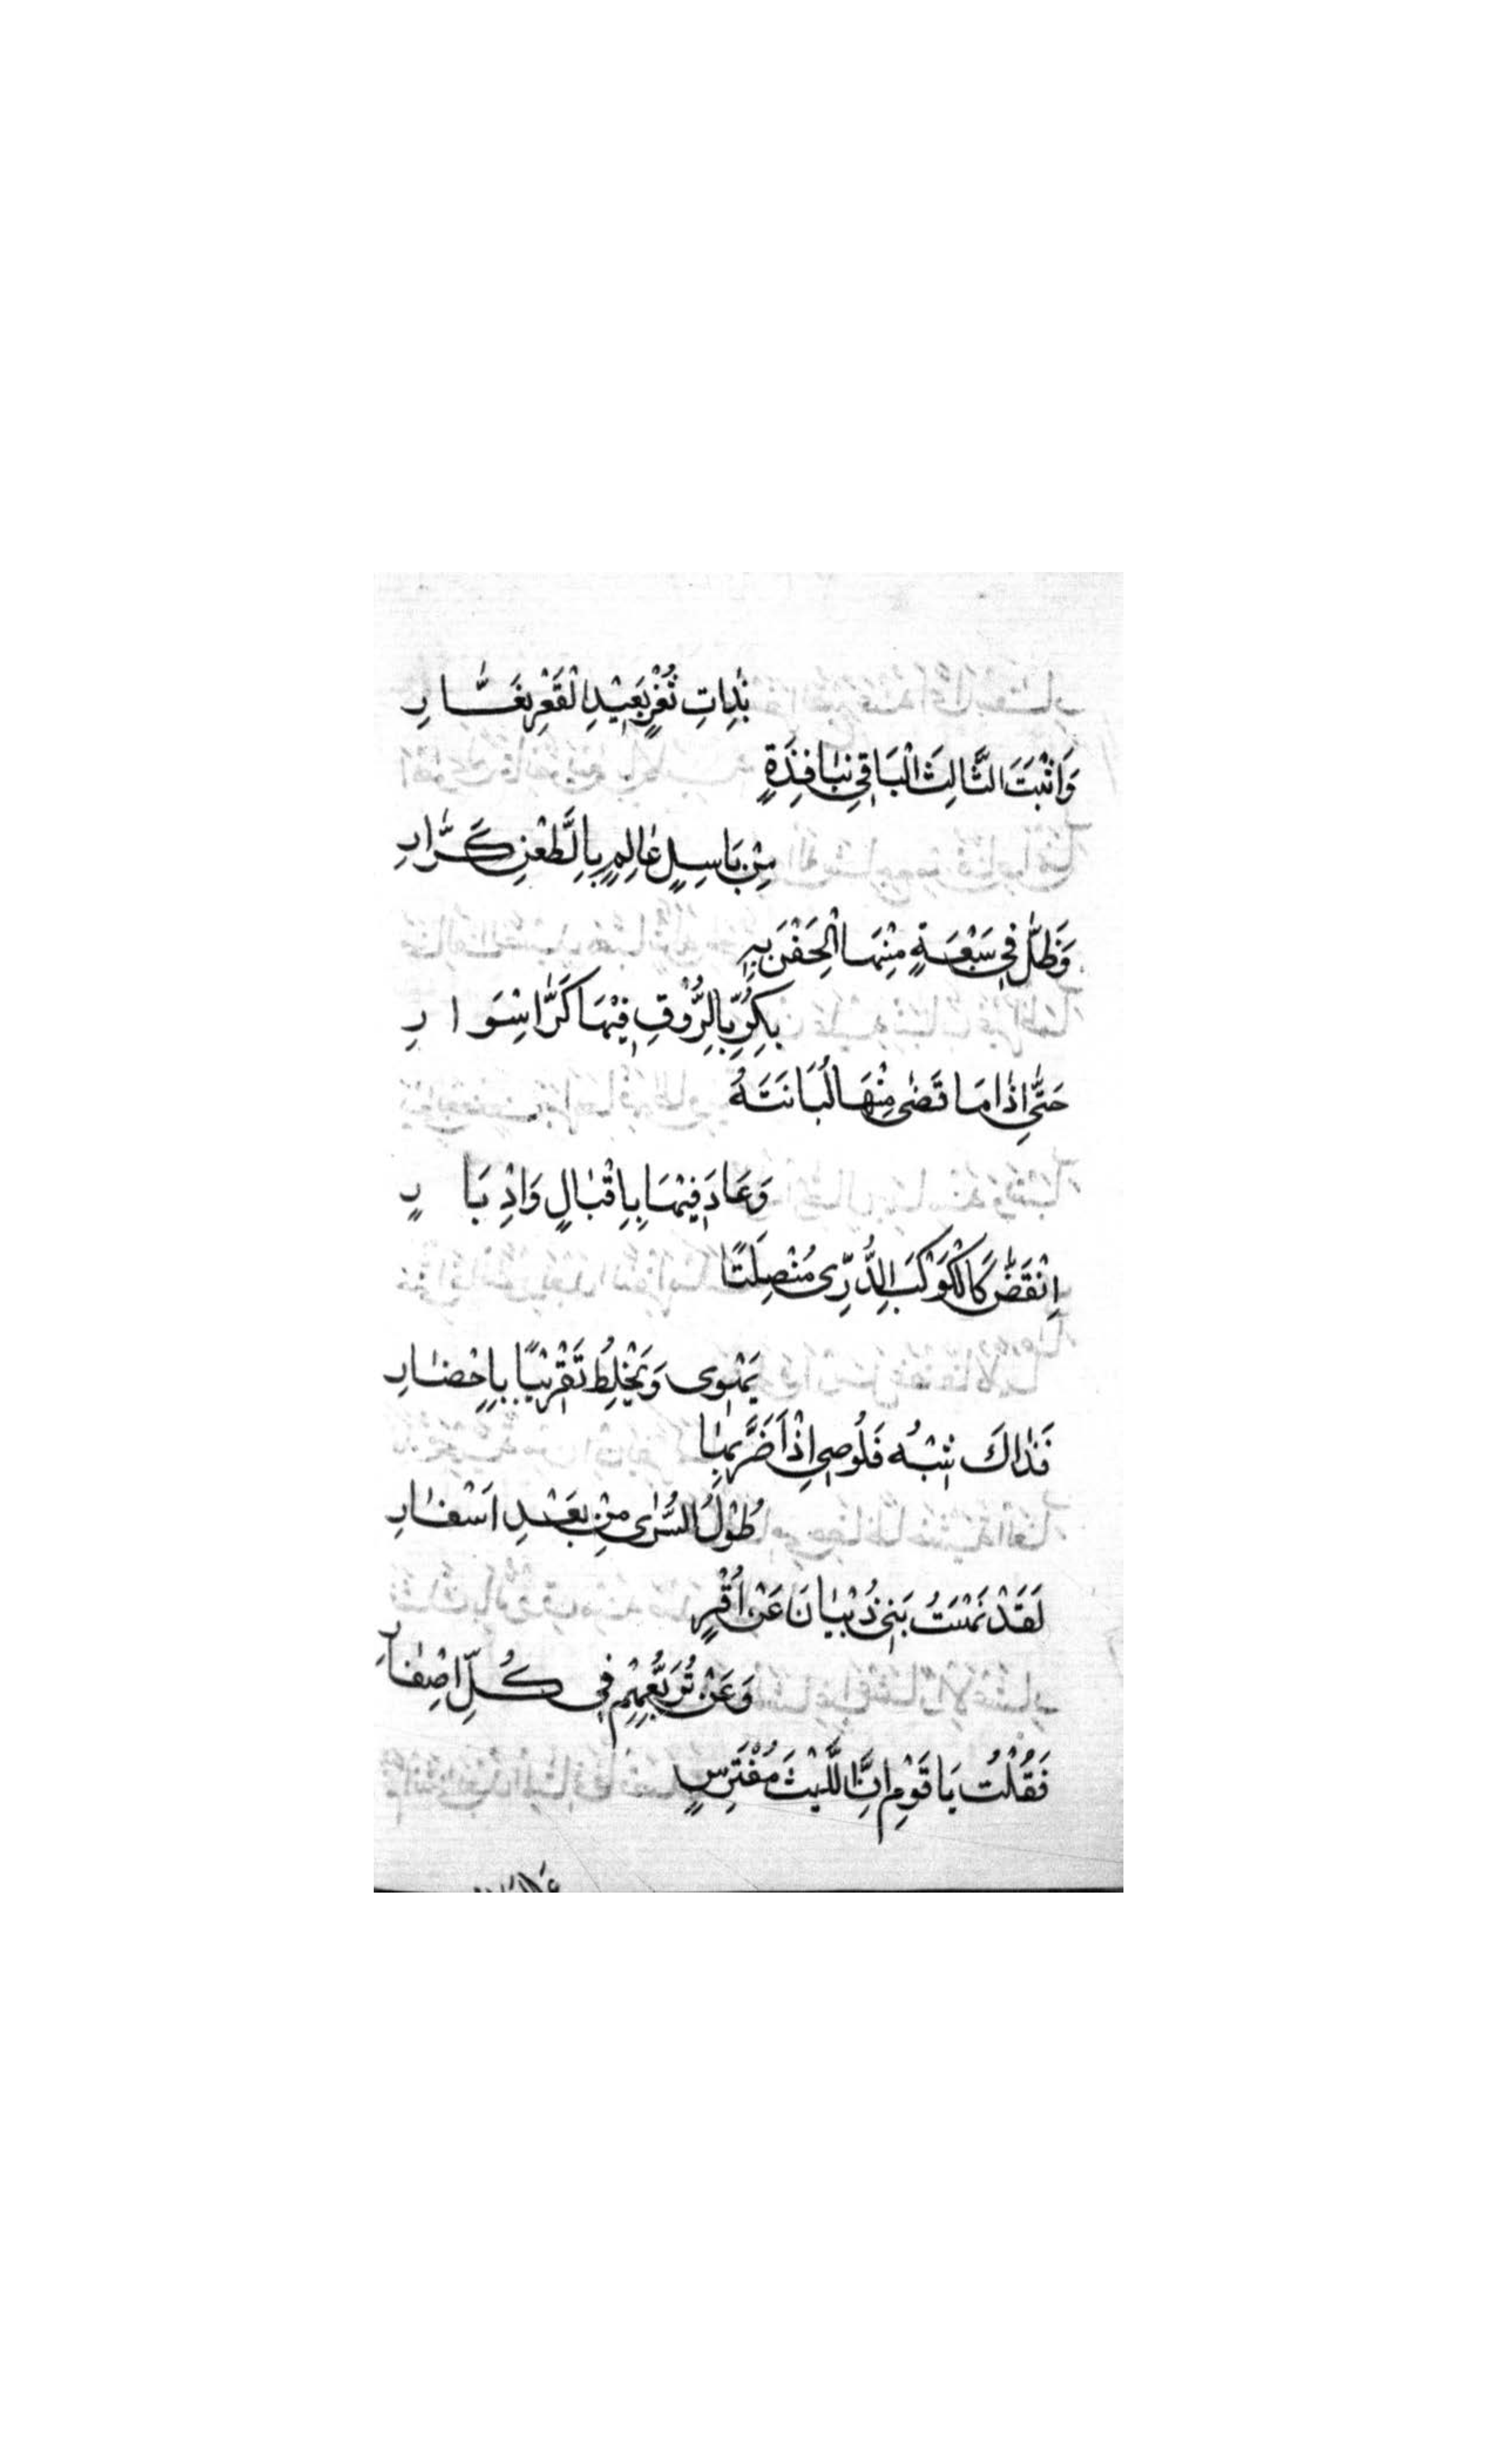 بِذَاتِ ثُغْرٍ بَعِيْدِ الْقَعْرِ نَغَّـــارِ
وَاثْبَتَ الثَّالِثَ الْبَاقِي بِنَافِذَةٍ
مِنْ بَاسِلٍ عَالِمٍ بِالطَّعْنِ كَرَّارِ
وَظَلَّ فِي سَبْعَةٍ مِنْهَا لَحِقْنَ بِهِ
يَكِرُّ بِالرَّوْقِ فِيْهَا كَرَّ اِسْوَارِ
حَتَّى اِذَا مَا قَضٰى مِنْهَا لُبَانَتَهُ
وَعَادَ فِيْهَا بِاِقْبَالٍ وَاِدْبَارٍ
اِنْقَضَّ كَالْكَوْكَبِ الدُّرِّى مُنْصِلَتًا
يَهْوِى وَيَخْلِطُ تَقْرِيْبًا بِاِحْضَارِ
فَذَاكَ شِبْهُ قَلُوصِي اِذْ اَضَرَّ بِهَا
طُوْلُ السُّرٰى مِنْ بَعْدِ اَسْفَارِ
لَقَدْ نَهَيْتُ بَنِى ذُبْيَانَ عَنْ اُقُرٍ
وَعَنْ تَرَبُّعِهِمْ فِى كُلِّ اَصْفَارِ
فَقُلْتُ يَا قَوْمِ اِنَّ اللَّيْثَ مُفْتَرِسٍ